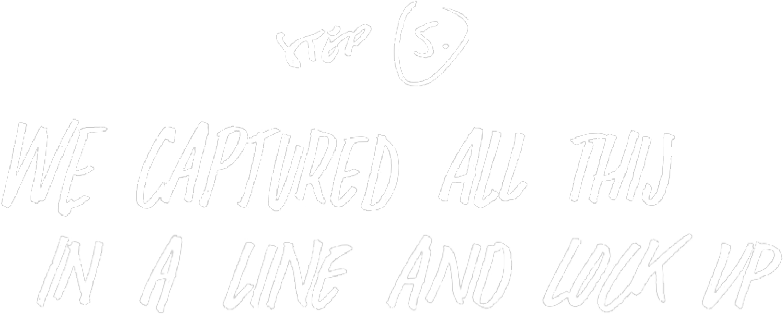 STEP 5.
WE CAPTURED ALL THIS
IN A LINE AND LOCK UP